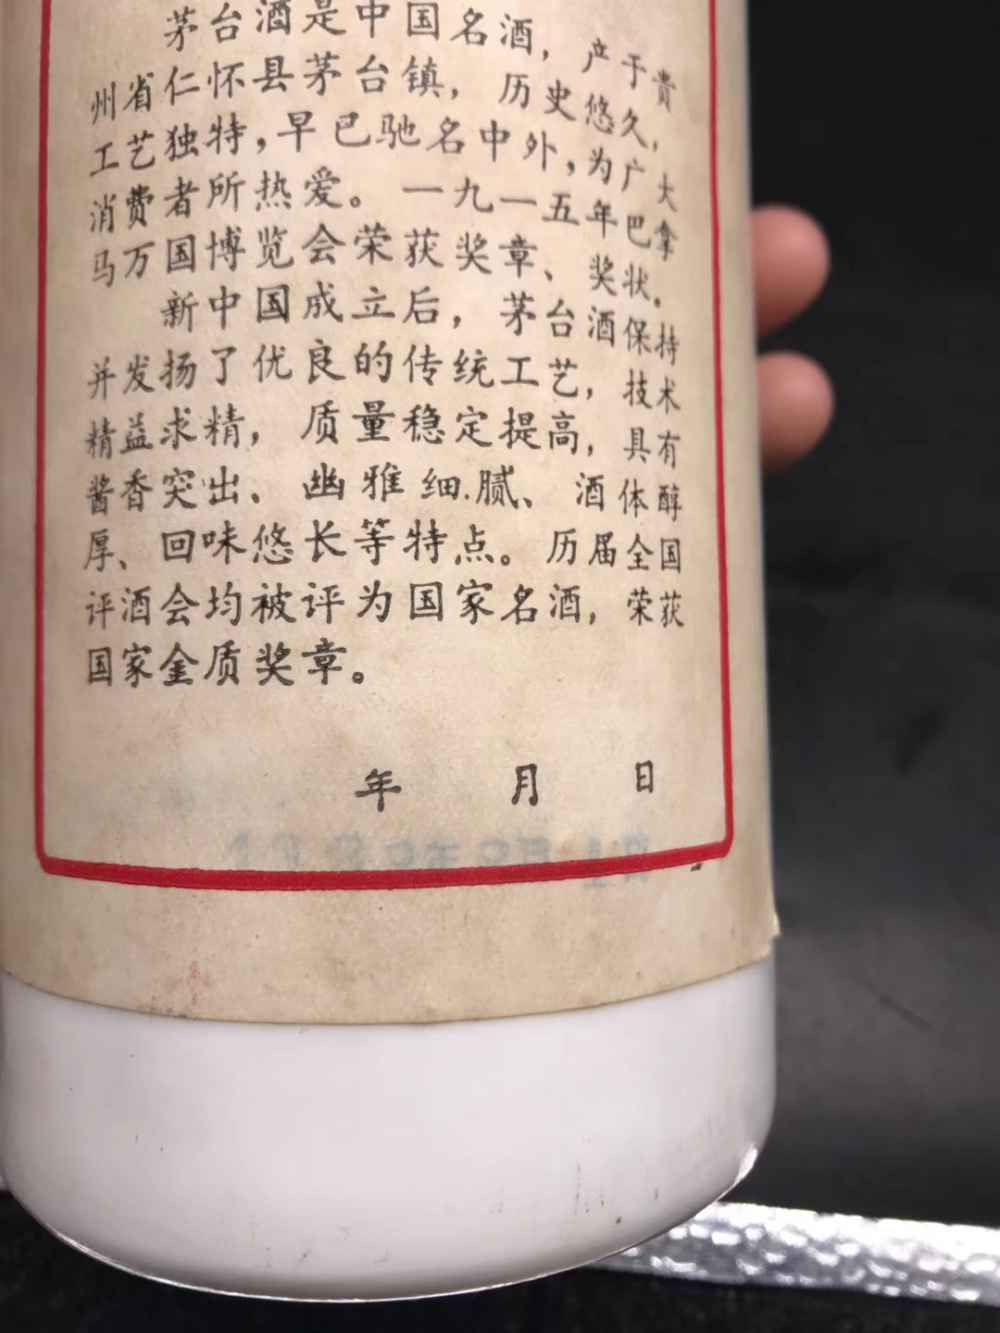 茅台酒是中国名酒，产于贵
州省仁怀县茅台镇，历史悠久，
工艺独特，早巴驰名中外，为广大
消费者所热爱。一九一五年巴拿
马万国博览会荣获奖章、奖状。
新中国成立后，茅台酒保持
并发扬了优良的传统工艺，技术
精益求精，质量稳定提高，具有
酱香突出、幽雅细腻、酒体醇
厚、回味悠长等特点。历届全国
评酒会均被评为国家名酒，荣获
国家金质奖章。
年 月 日